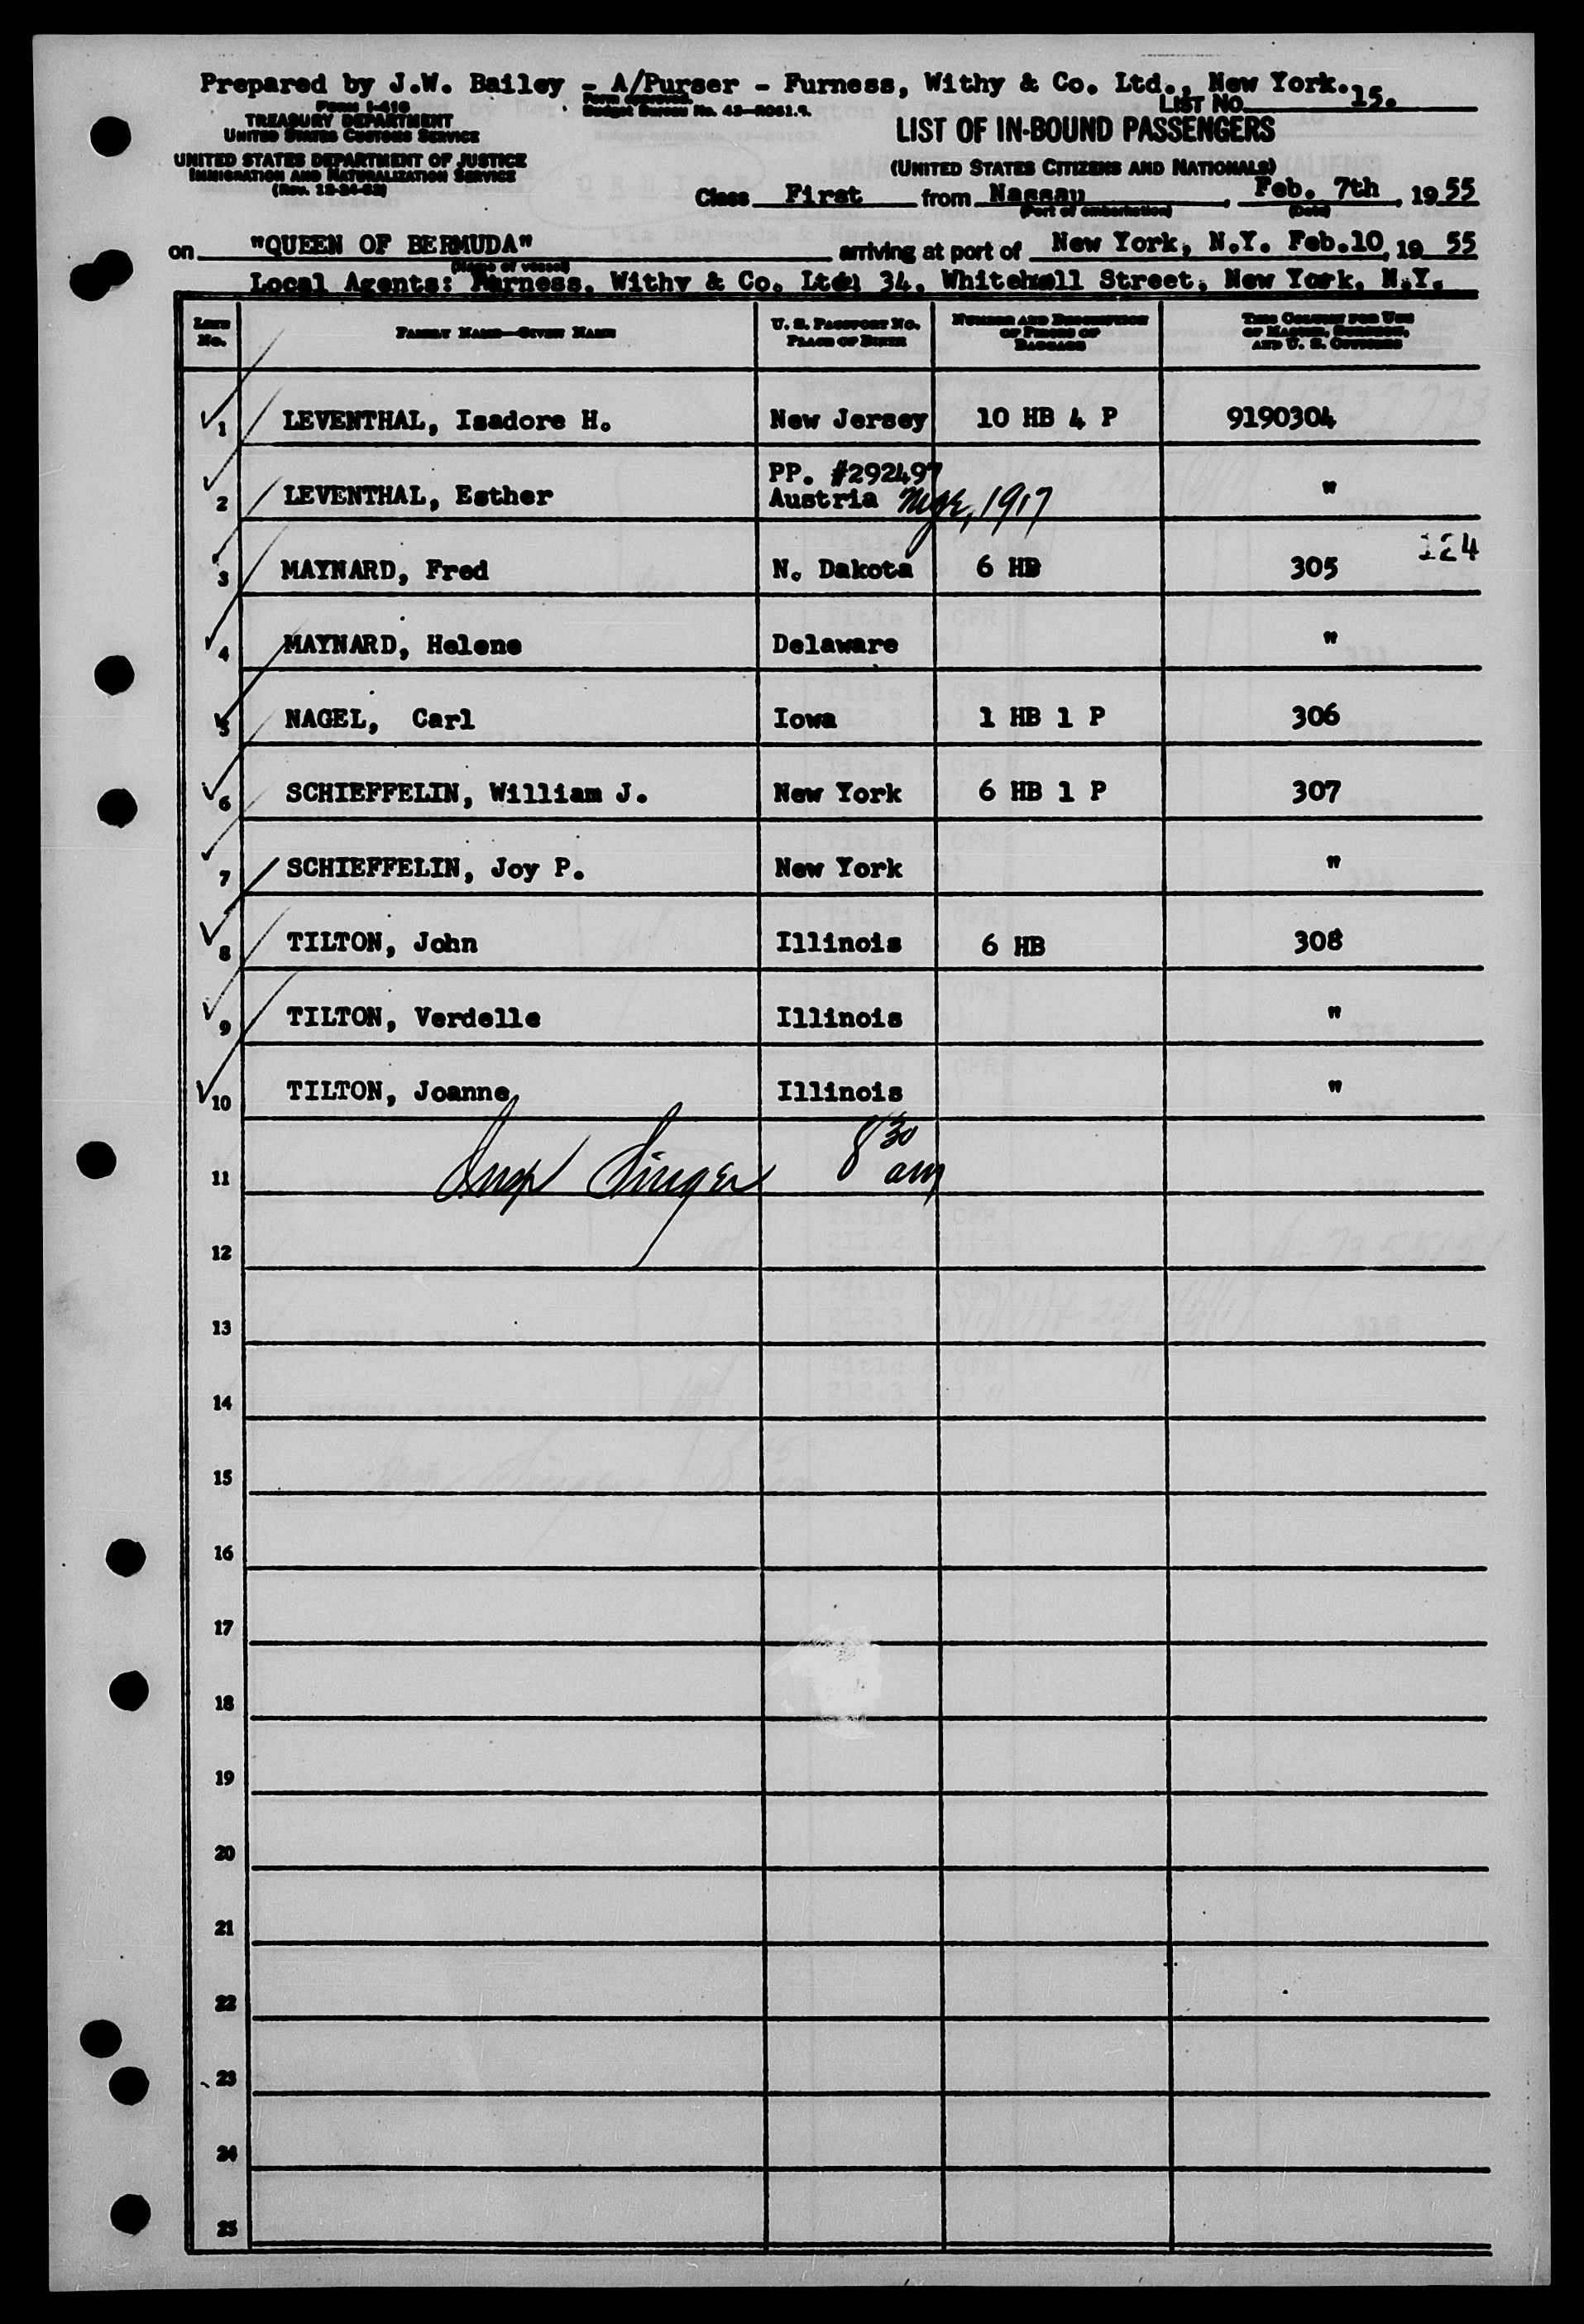 Prepared by J.W. Bailey - A/Purser - Furness, Withy & Co. Ltd., New York.
LIST NO. 15.
Form I-418
TREASURY DEPARTMENT
UNITED STATES CUSTOMS SERVICE
UNITED STATES DEPARTMENT OF JUSTICE
IMMIGRATION AND NATURALIZATION SERVICE
Form approved.
Budget Bureau No. 43-R061.
LIST OF IN-BOUND PASSENGERS
(UNITED STATES CITIZENS AND NATIONALS)
Class First from Nassau, Feb. 7th, 1955
(Port of embarkation) (Date)
on "QUEEN OF BERMUDA" arriving at port of New York, N.Y. Feb.10, 1955
(Name of vessel)
Local Agents: Furness, Withy & Co. Ltd. 34, Whitehall Street, New York, N.Y.
LINE No. FAMILY NAME—GIVEN NAME U. S. PASSPORT NO. PLACE OF BIRTH NUMBER AND DESCRIPTION OF PIECES OF BAGGAGE THIS COLUMN FOR USE OF MASTER, SURGEON, AND U. S. OFFICERS
1 LEVENTHAL, Isadore H. New Jersey 10 HB 4 P 9190304
PP. #292497
2 LEVENTHAL, Esther Austria 1917 "
124
3 MAYNARD, Fred N. Dakota 6 HB 305
4 MAYNARD, Helene Delaware "
5 NAGEL, Carl Iowa 1 HB 1 P 306
6 SCHIEFFELIN, William J. New York 6 HB 1 P 307
7 SCHIEFFELIN, Joy P. New York "
8 TILTON, John Illinois 6 HB 308
9 TILTON, Verdelle Illinois "
10 TILTON, Joanne Illinois "
11 Insp Singer 8 30 am
12
13
14
15
16
17
18
19
20
21
22
23
24
25